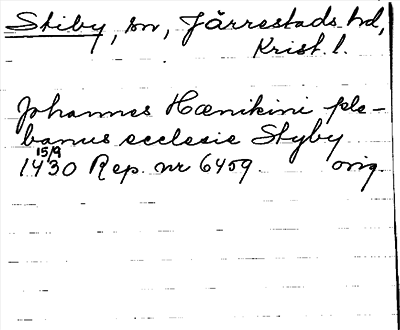 Stiby, sn, Järrestads hd,
Krist. l.
Johannes Hænikini ple-
banus ecclesie Styby
15/9
1430 Rep. nr 6459 orig.